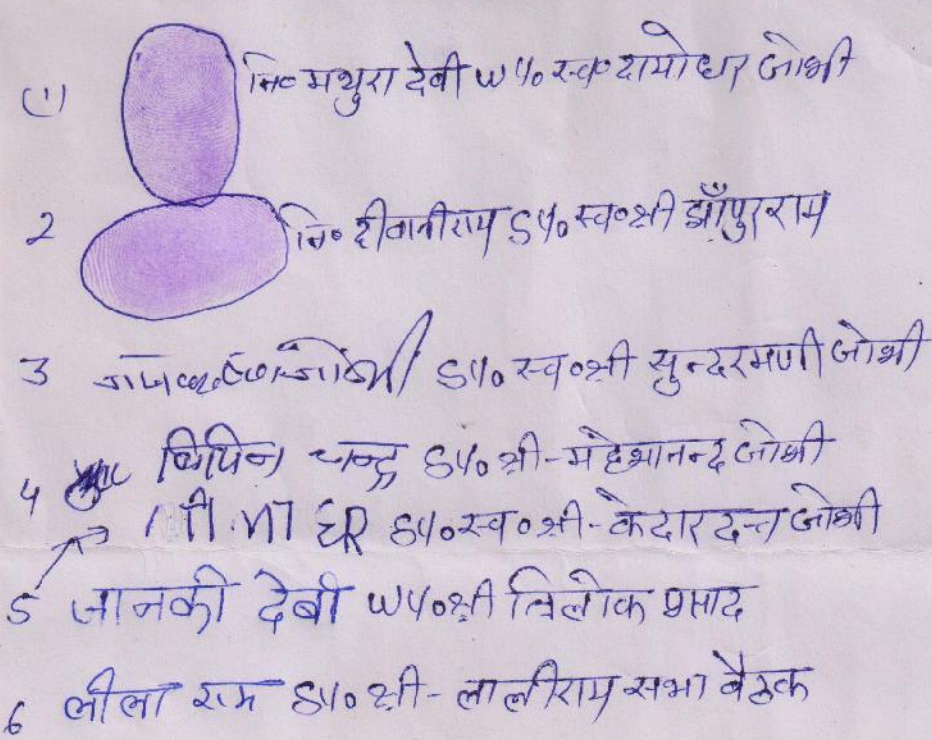 (1) नि० मथुरा देवी W/o स्व० दामोधर जोशी
2 नि० दीवानीराम S/o स्व० श्री झाँपुरराम
3 जयकृष्ण जोशी S/o स्व० श्री सुन्दरमणी जोशी
4 विपिन चन्द्र S/o श्री - महेशानन्द जोशी
S/o स्व० श्री - केदार दत्त जोशी
5 जानकी देवी W/o श्री त्रिलोक प्रसाद
6 लीला राम S/o श्री - लालीराम सभा बैठक